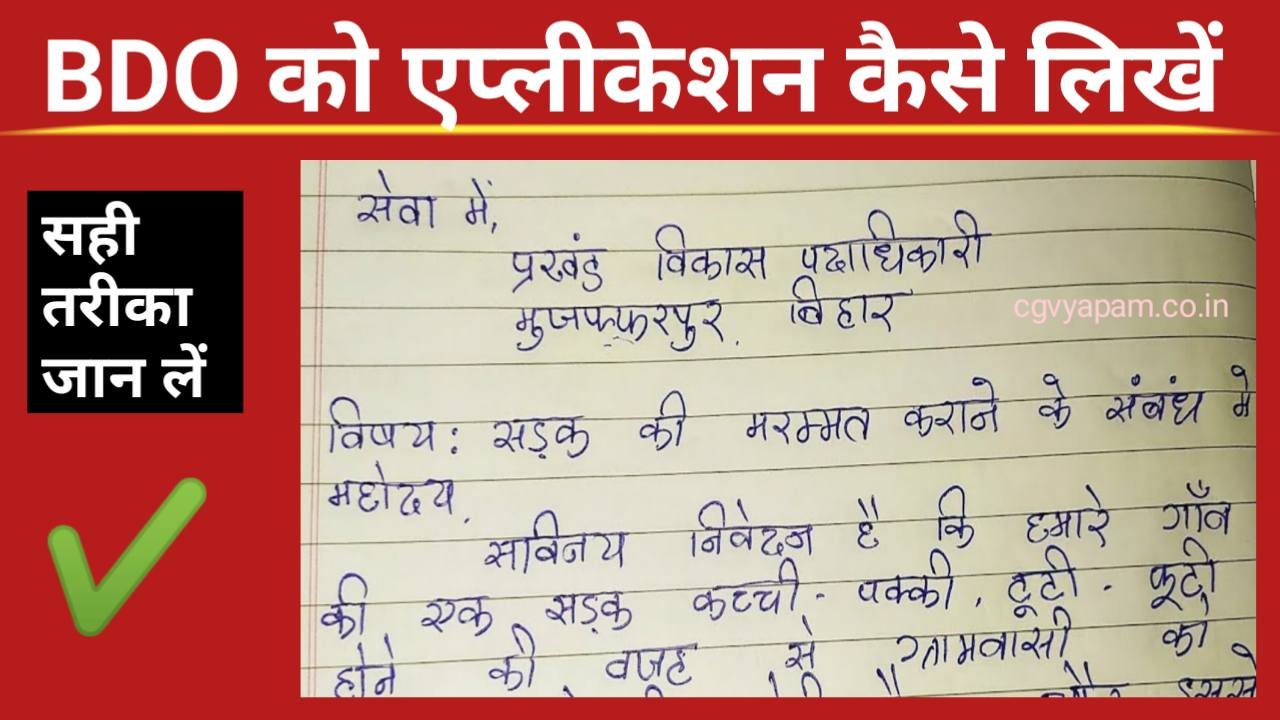 BDO को एप्लीकेशन कैसे लिखें
सही
तरीका
जान लें
सेवा में,
प्रखंड विकास पदाधिकारी
मुजफ्फरपुर, बिहार
cgvyapam.co.in
विषय: सड़क की मरम्मत कराने के संबंध मे
महोदय,
सविनय निवेदन है कि हमारे गाँव
की एक सड़क कच्ची - पक्की, टूटी - फूटी
होने की वजह से ग्रामवासी को